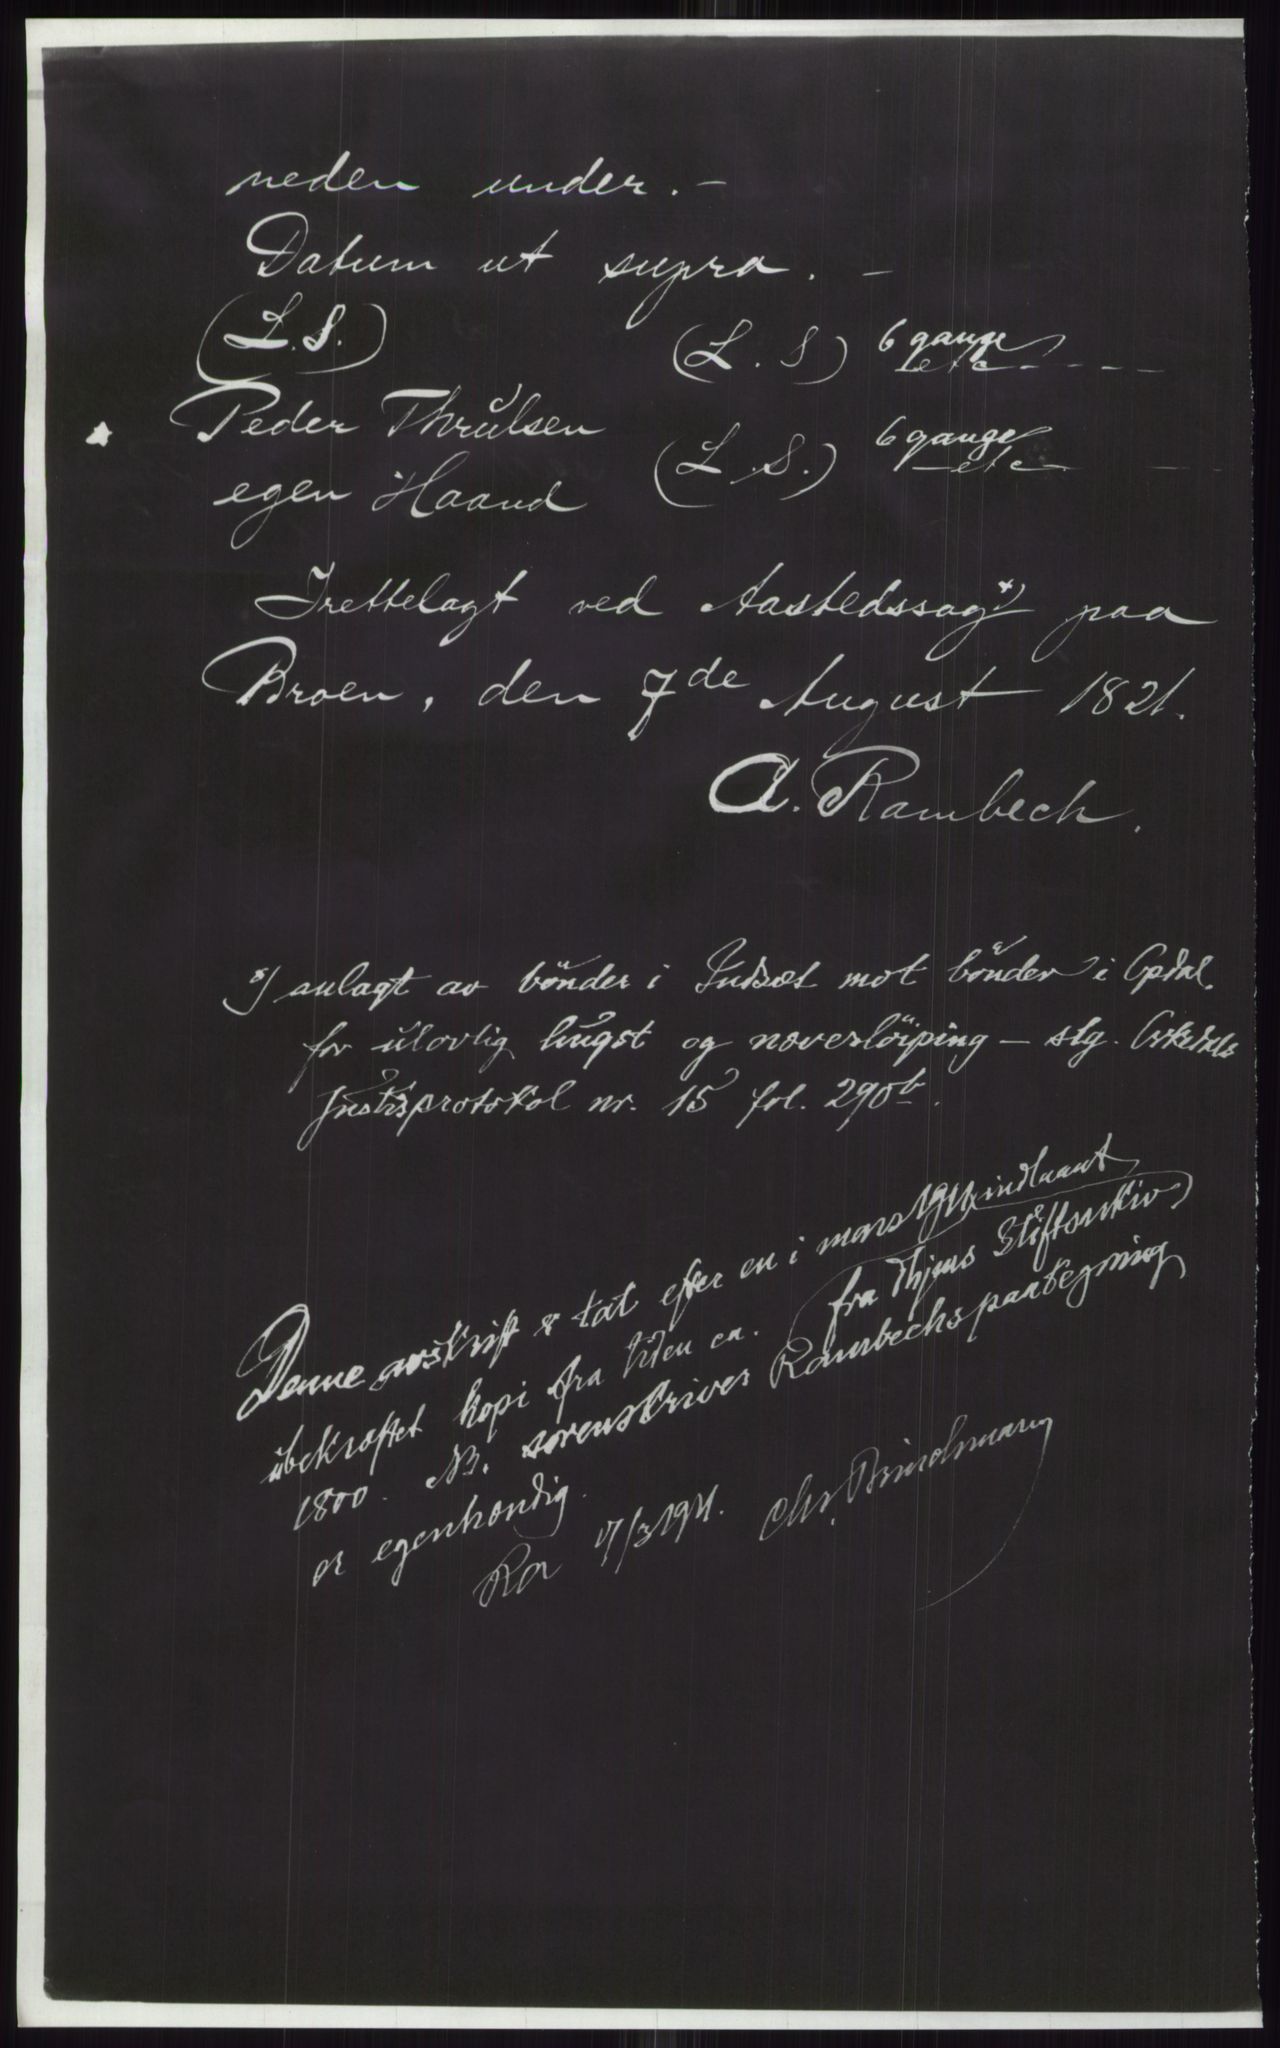 neden under. –
Datum ut supra. –
(L. S.)
(L. S) 6 gange etc - - - -
Peder Thrulsen
(L. S.) 6 gange etc - -
egen Haand
Irettelagt ved Aastedssag*) paa
Broen, den 7de August 1821.
A. Rambech.
*) anlagt av bönder i Indset mot bönder i Opdal
for ulovlig hugst og næverlöiping – slg. Orkedals
Justisprotokol nr. 15 fol. 290b.
Denne avskrift er tat efter en i mars 1911 indlaant
ubekræftet kopi fra tiden ca. (fra Thjems Stiftsarkiv)
1800. NB. sorenskriver Rambechs paategning
er egenhændig.
17/3 1911. Chr. Brinchmann